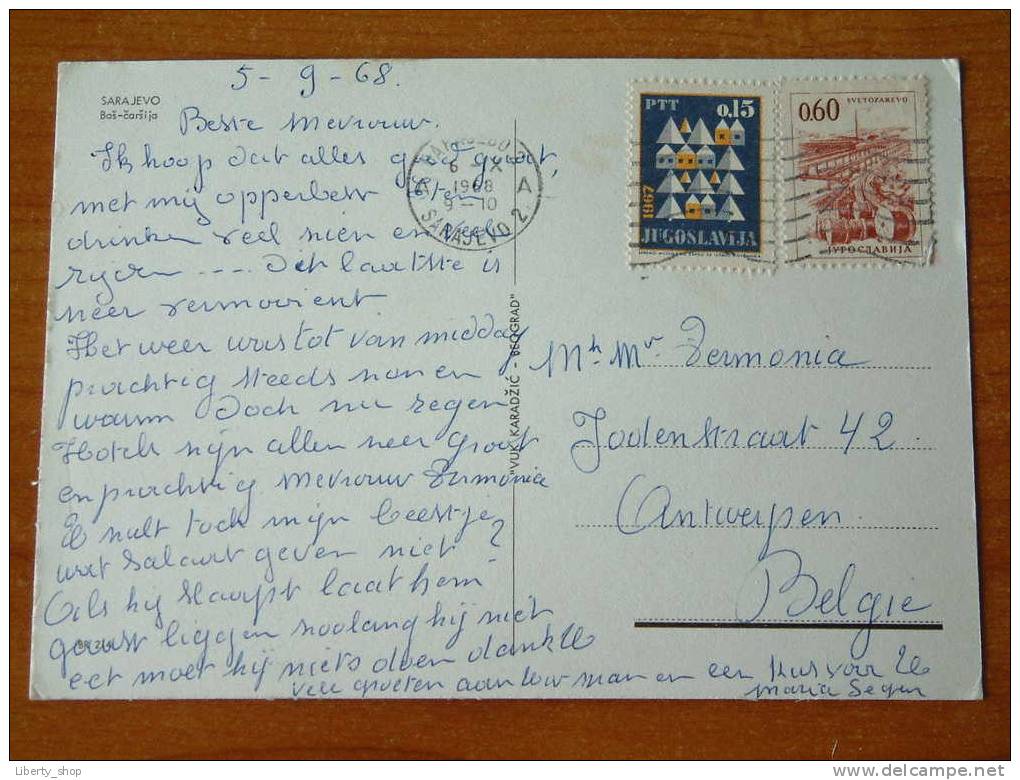 SARAJEVO
Baš-čaršija
5-9-68.
Beste mevrouw.
Ik hoop dat alles goed gaat,
met mij opperbest eten
drinken veel zien en veel
rijden .... Dit laatste is
zeer vermoeient
Het weer was tot van middag
prachtig steeds zon en
warm doch nu regen
Hotels zijn allen zeer groot
en prachtig mevrouw Dermonia
U zult toch mijn beestje
wat salaat geven niet?
Als hij slaapt laat hem
gerust liggen zoolang hij niet
eet moet hij niets doen dank U
Vele groeten aan Uw man en een kus voor U
Maria Segers
"VUK KARADŽIĆ - BEOGRAD"
PTT 0,15
1967
JUGOSLAVIJA
SVETOZAREVO
0,60
ЈУГОСЛАВИЈА
6 X
1968
9-10
A A
SARAJEVO 2
Mr Mr Dermonia
Jodenstraat 42.
Antwerpen.
Belgie
Liberty_shop
delcampe.net